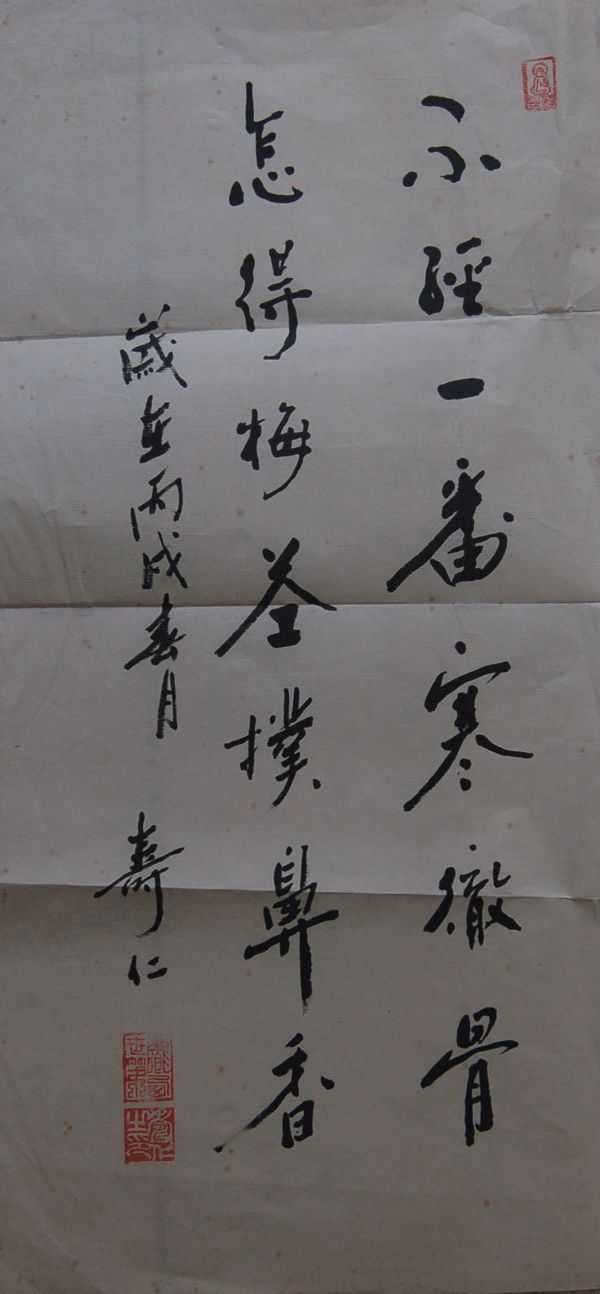 不經一番寒徹骨
怎得梅花撲鼻香
歲在丙戌春月 壽仁